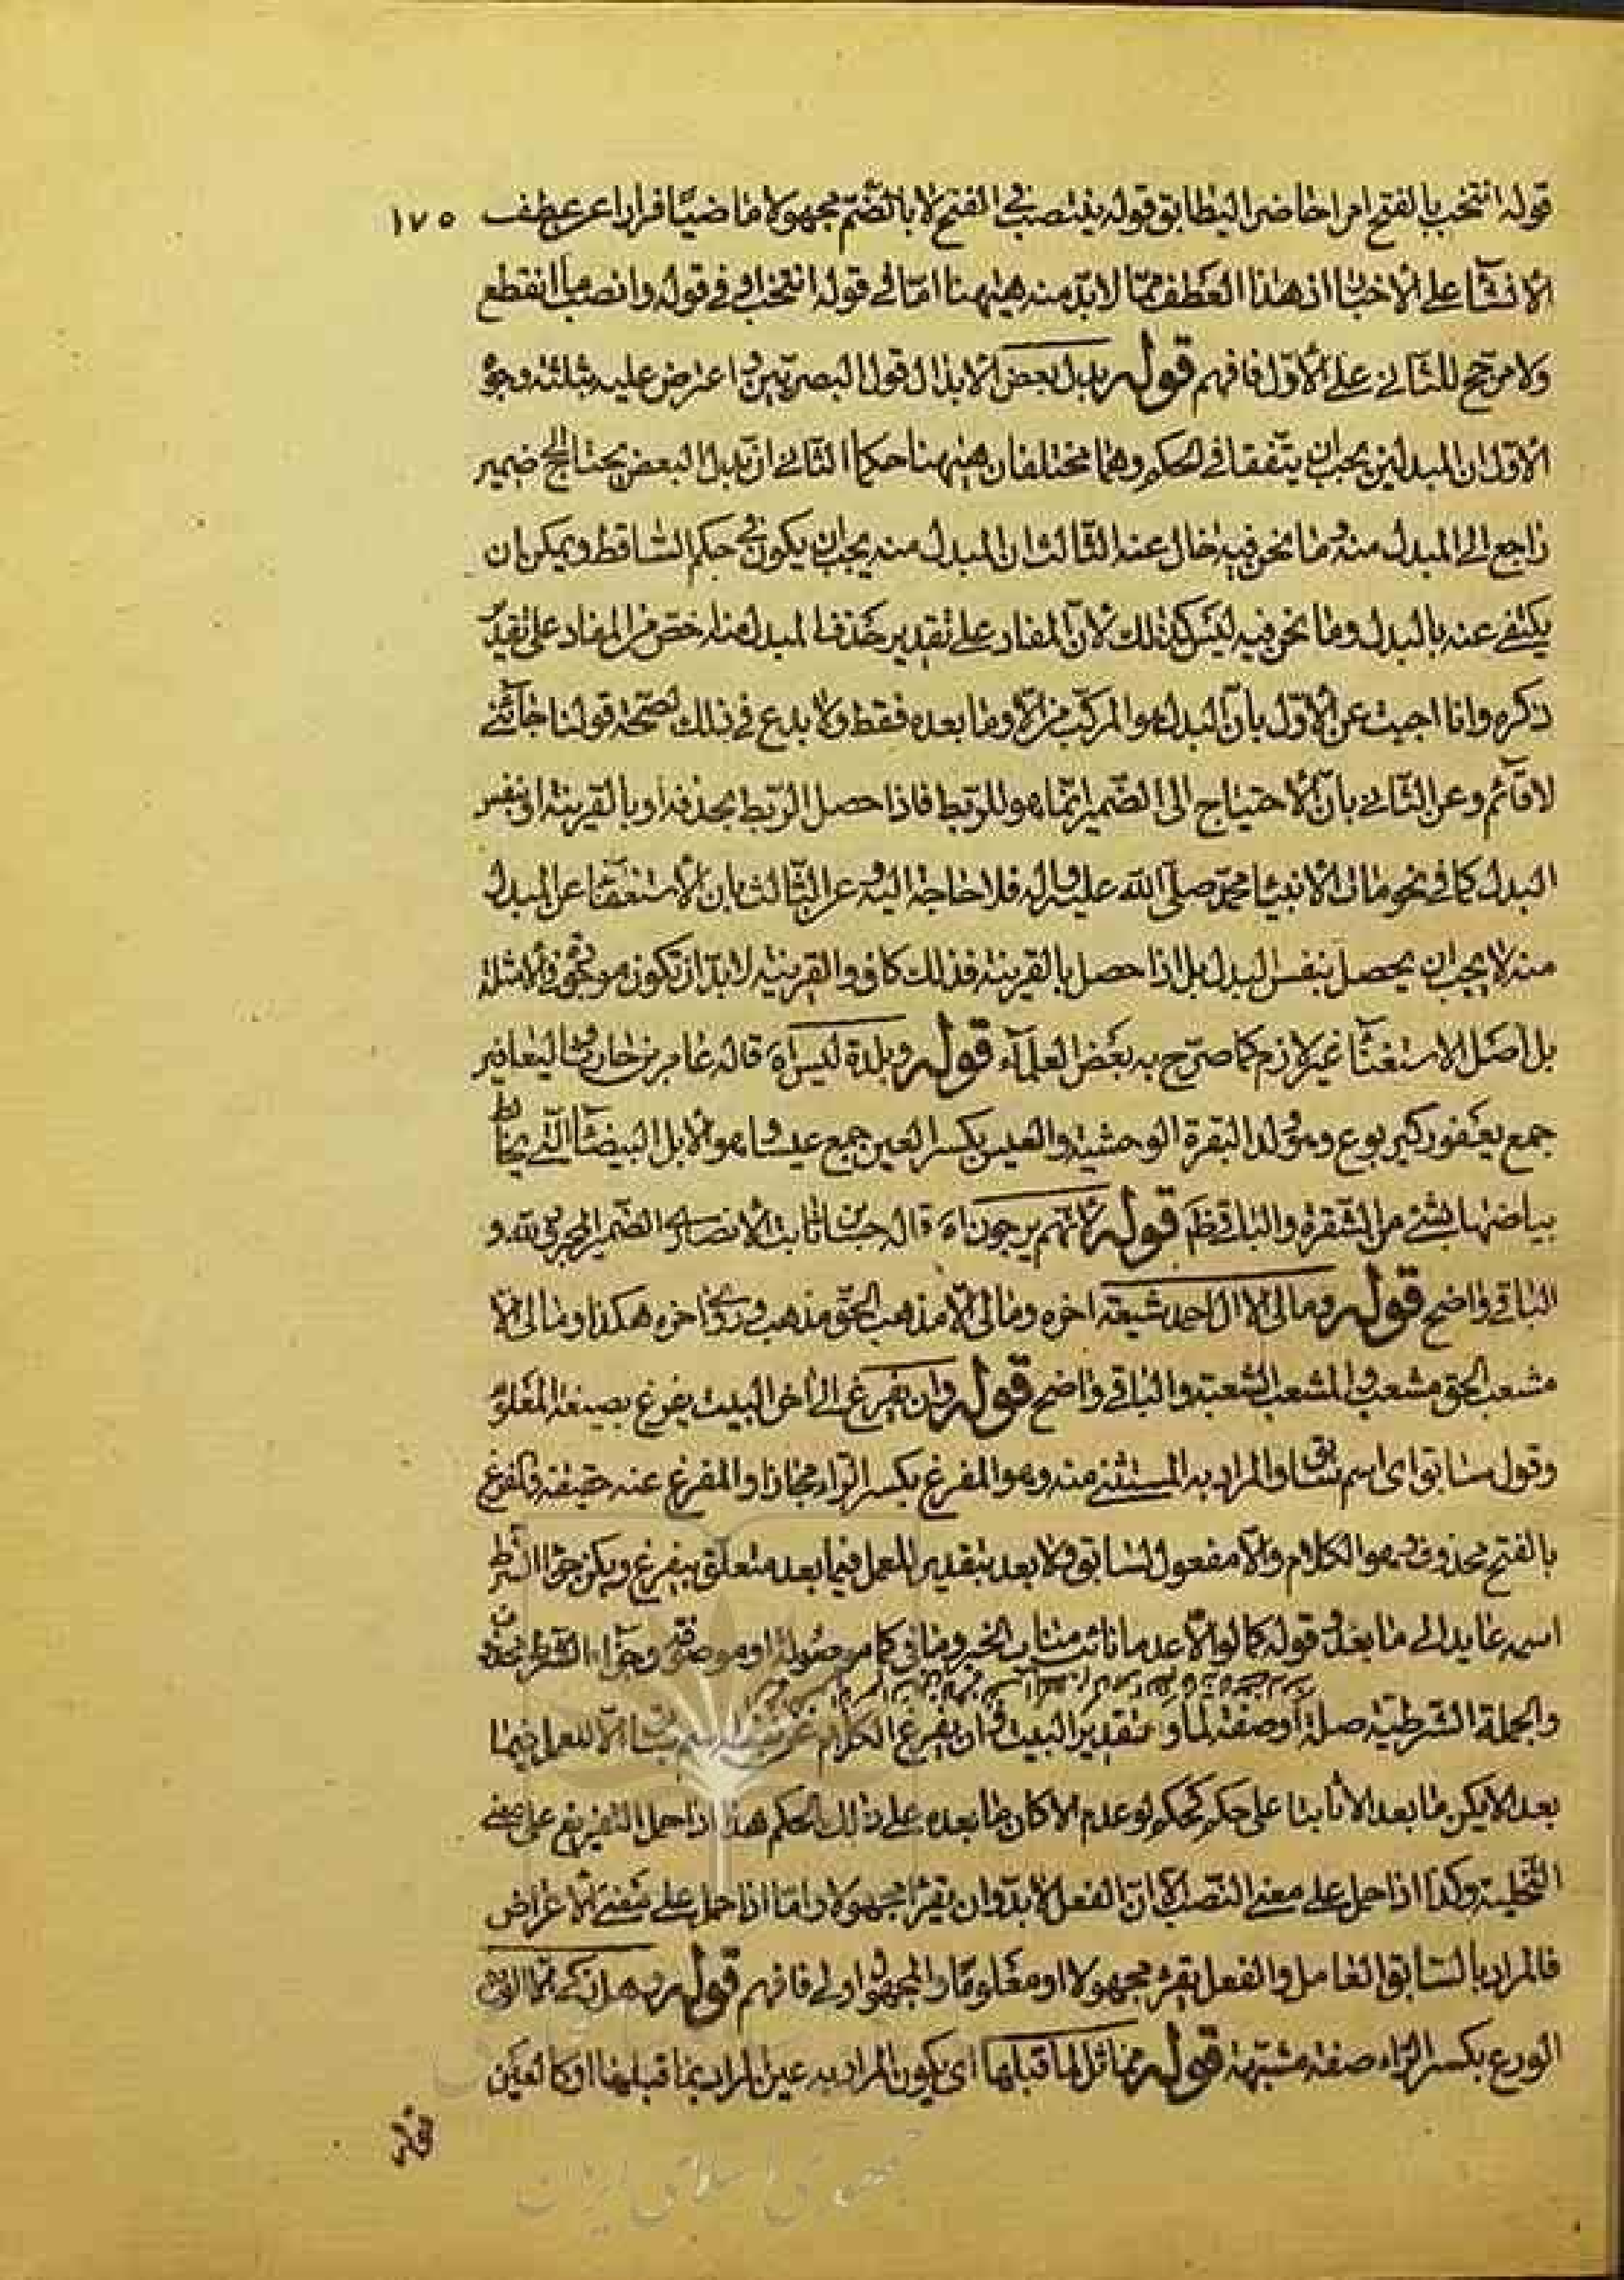 قوله انتخب بالفتح امرا حاضرا ليطابق قوله ينتصب في الفتح لا بالضّم مجهولا ماضيا فرارا عن عطف ١٧٥
الانشاء على الاخبار اذ هذا العطف ممّا لابدّ منه هيهنا امّا في قوله انتخب او في قوله وانصب ما انقطع
ولا مرجّح للثاني على الاوّل فافهم قوله بدل بعض الابدال قول البصريّين واعترض عليه بثلثة وجوه
الاوّل ان المبدلين يجب ان يتّفقا في الحكم وهما مختلفان هيهنا حكما الثاني ان بدل البعض يحتاج الى ضمير
راجع الى المبدل منه وما نحن فيه خال عنه الثالث ان المبدل منه يجب ان يكون في حكم الساقط ويمكن ان
يكتفي عنه بالبدل وما نحن فيه ليس كذلك لانّ المفاد على تقدير حذف المبدل منه اخصّ من المفاد على تقدير
ذكره وانا اجيب عن الاوّل بانّ البدل هو المركّب من الّا وما بعده فقط ولا بدع في ذلك لصحّة قولنا جائني
لا قائم وعن الثاني بانّ الاحتياج الى الضّمير انّما هو للرّبط فاذا حصل الرّبط بحذفه او بالقرينة او بنفس
البدل كما في نحو مات الانبياء محمّد صلّى الله عليه وآله فلا حاجة اليه وعن الثّالث بان الاستغناء عن المبدل
منه لا يجب ان يحصل بنفس البدل بل اذا حصل بالقرينة فذلك كاف والقرينة لابدّ ان تكون موجودة في الامثلة
بل اصل الاستغناء غير لازم كما صرّح به بعض العلماء قوله وبلدة ليس اه قاله عامر بن حارث واليعافير
جمع يعفور كيربوع وهو ولد البقرة الوحشية والعيس بكسر العين جمع عيساء وهو الابل البيضاء التي يخالط
بياضها بشئ من الشقرة والباقي ظم قوله لانّهم يرجون اه قاله حسّان بن ثابت الانصاري الضّمير المجرور لله و
الباقي واضح قوله ومالي الا ال احمد شيعة اخره ومالي الّا مذهب الحقّ مذهب وروي اخره هكذا ومالي الّا
مشعب الحق مشعب والمشعب الشعبة والباقي واضح قوله وان يفرغ الى اخر البيت يفرغ بصيغة المعلوم
وقوله سابق اى اسم سابق والمراد به المستثنى منه وهو المفرغ بكسر الرّاء مجازا والمفرغ عنه حقيقة والمفرغ
بالفتح محذوف وهو الكلام والّا مفعول لسابق ولا بعد بتقدير للعمل فيما بعد متعلّق بيفرغ ويكن جزاء الشرط
اسمه عايد الى ما بعد وقوله كما لو الّا عدما نائب مناب الخبر وما في كما موصولة او موصوفة وجزاء الشرط محذوف
والجملة الشرطيّة صلة او صفة لما و تقدير البيت وان يفرغ الكلام الّا للعمل فيما
بعد الا يكن ما بعد الا ثابتا على حكم كحكم لو عدم الا كان ما بعده على ذلك الحكم هذا اذا حمل التفريغ على معنى
التخلية وكذا اذا حمل على معنى النصب لانّ الفعل لابدّ وان يقرء مجهولا وامّا اذا حمل على معنى الاعراض
فالمراد بالسّابق العامل والفعل يقرء مجهولا او معلوما والمجهول اولى فافهم قوله
الورع بكسر الرّاء صفة مشبّهة قوله مماثل لما قبلها اى يكون المراد به عين المراد بما قبلها او كالعين